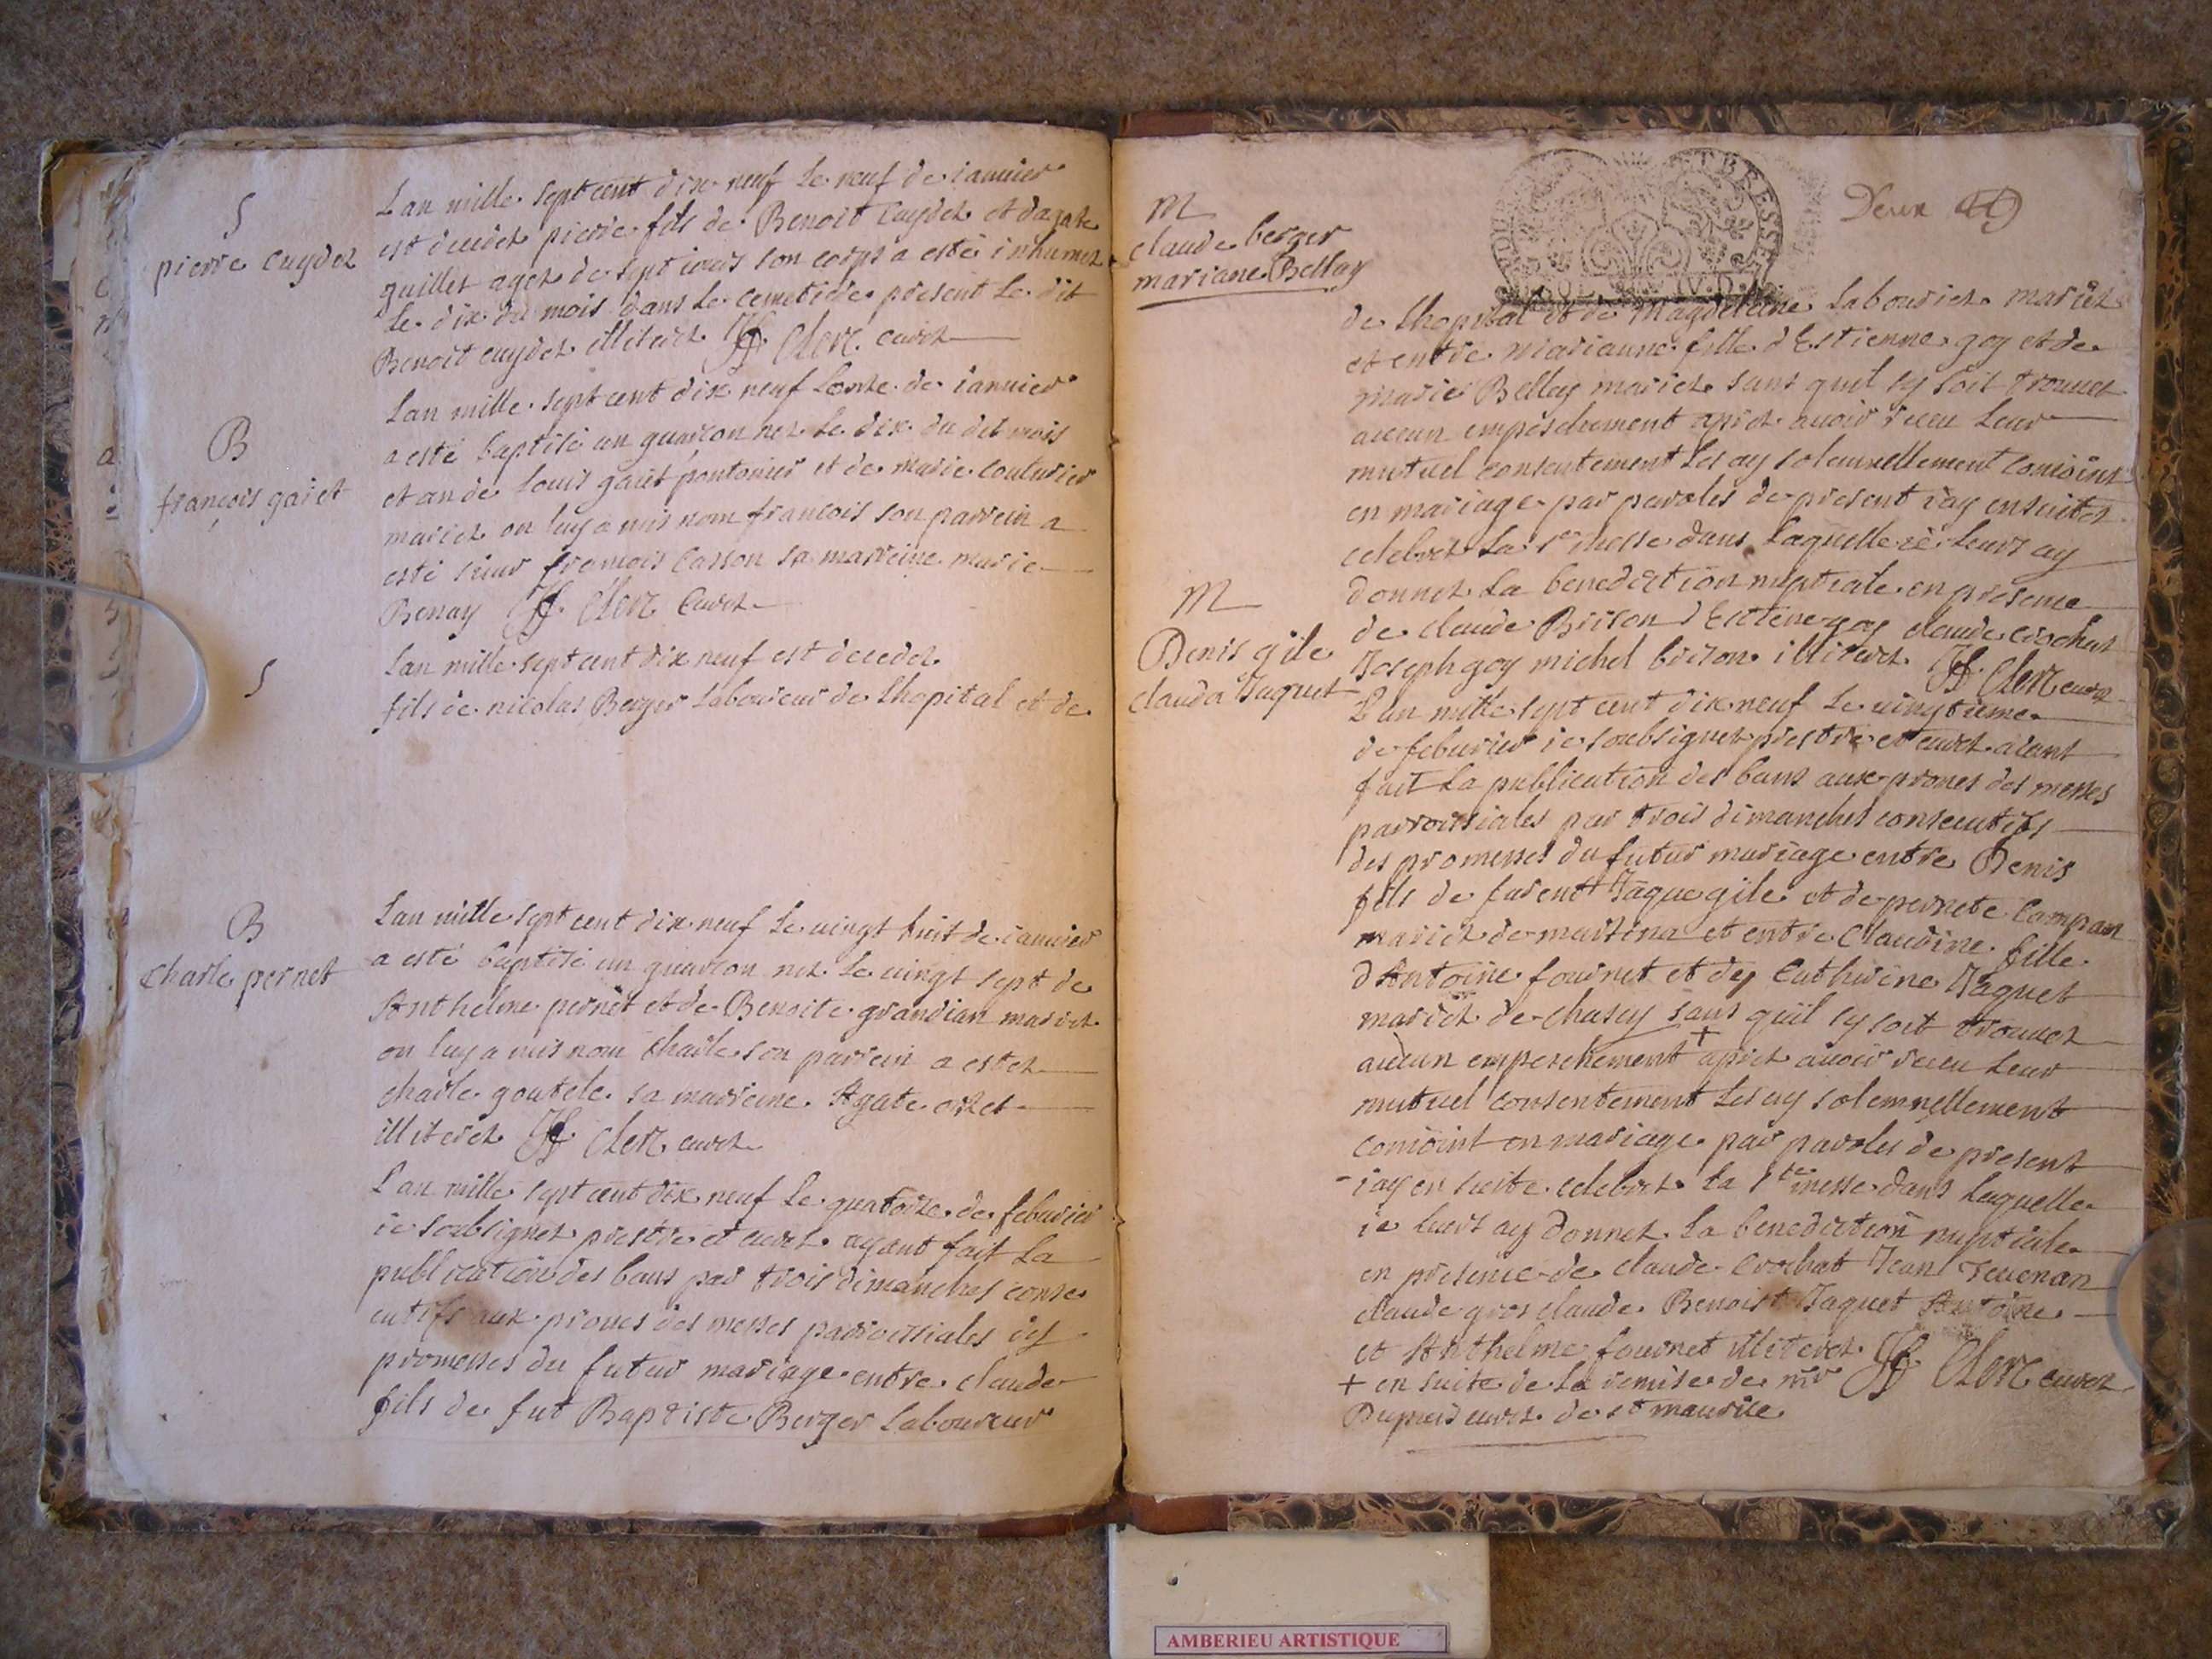 S
pierre cuydet
Lan mille sept cent dix neuf le neuf de ianuier
est decedez pierre fils de Benoit Cuydez et dagate
guillet agez de sept iours son corps a esté inhumez
le dix du mois dans le cemetiere present le dit
Benoit cuydez illiterez Clerc curez
B
françois gariet
Lan mille sept cent dix neuf Lonze de ianuier
a esté baptisé un guarcon nez le dix du dit mois
et an de Louis pontonier et de marie couturier
mariez on luy a mis nom francois son parrein a
esté sieur francois Casson sa marreine marie
Benay Clerc Curez
S
Lan mille sept cent dix neuf est decedez
fils de nicolas Berger Laboureur de Lhopital et de
B
Charle pernet
Lan mille sept cent dix neuf le uingt huit de ianuier
a esté baptisé un guarcon nez le uingt sept de
Anthelme pernet et de Benoite grandian mariez
on luy a mis nom Charle son parrein a estez
charle goutele sa marreine Agate
illiterez Clerc curez
L an mille sept cent dix neuf le quatorze de feburier
ie soubsignez prestre et curez ayant fait la
publication des bans par trois dimanches conse
cutifs aux prones des messes parroissiales des
promesses du futur mariage entre claude
fils de fut Baptiste Berger Laboureur
M
claude berger
mariane Bellay
Deux
de Lhopital et de Magdeleine Labourier mariez
et entre marianne fille d Estienne goy et de
marie Bellay mariez sans quil sy soit trouuez
aucun empeschement aprez auoir receu leur
mutuel consentement les ay solemnellement conioint
en mariage par paroles de present iay ensuitez
celebrez la messe dans laquelle ie leurs ay
donnez la benediction nuptiale en presence
de claude Brison claude crochat
Joseph goy michel brison illiterez Clerc curez
M
Denis gile
clauda Jaquet
L an mille sept cent dix neuf le uingtieme
de feburier ie soubsignez prestre et curez aiant
fait la publication des bans aux prones des messes
parroissiales par trois dimanches consecutifs
des promesses du futur mariage entre Denis
fils de Jaque gile et de pernete Campan
mariez de et entre Claudine fille
d Antoine fournet et de Catherine Jaquet
mariez de chasey sans quil sy soit trouuez
aucun empeschement + aprez auoir receu leur
mutuel consentement les ay solemnellement
conioint en mariage par paroles de present
iay en suite celebrez la ste messe dans laquelle
ie leurs ay donnez la benediction nuptiale
en presence de claude Crochat Jean
claude gros claude Benoist Jaquet Antoine
et Anthelme fournet illiterez Clerc curez
+ en suite de la remise de mr
curez de st maurice
AMBERIEU ARTISTIQUE